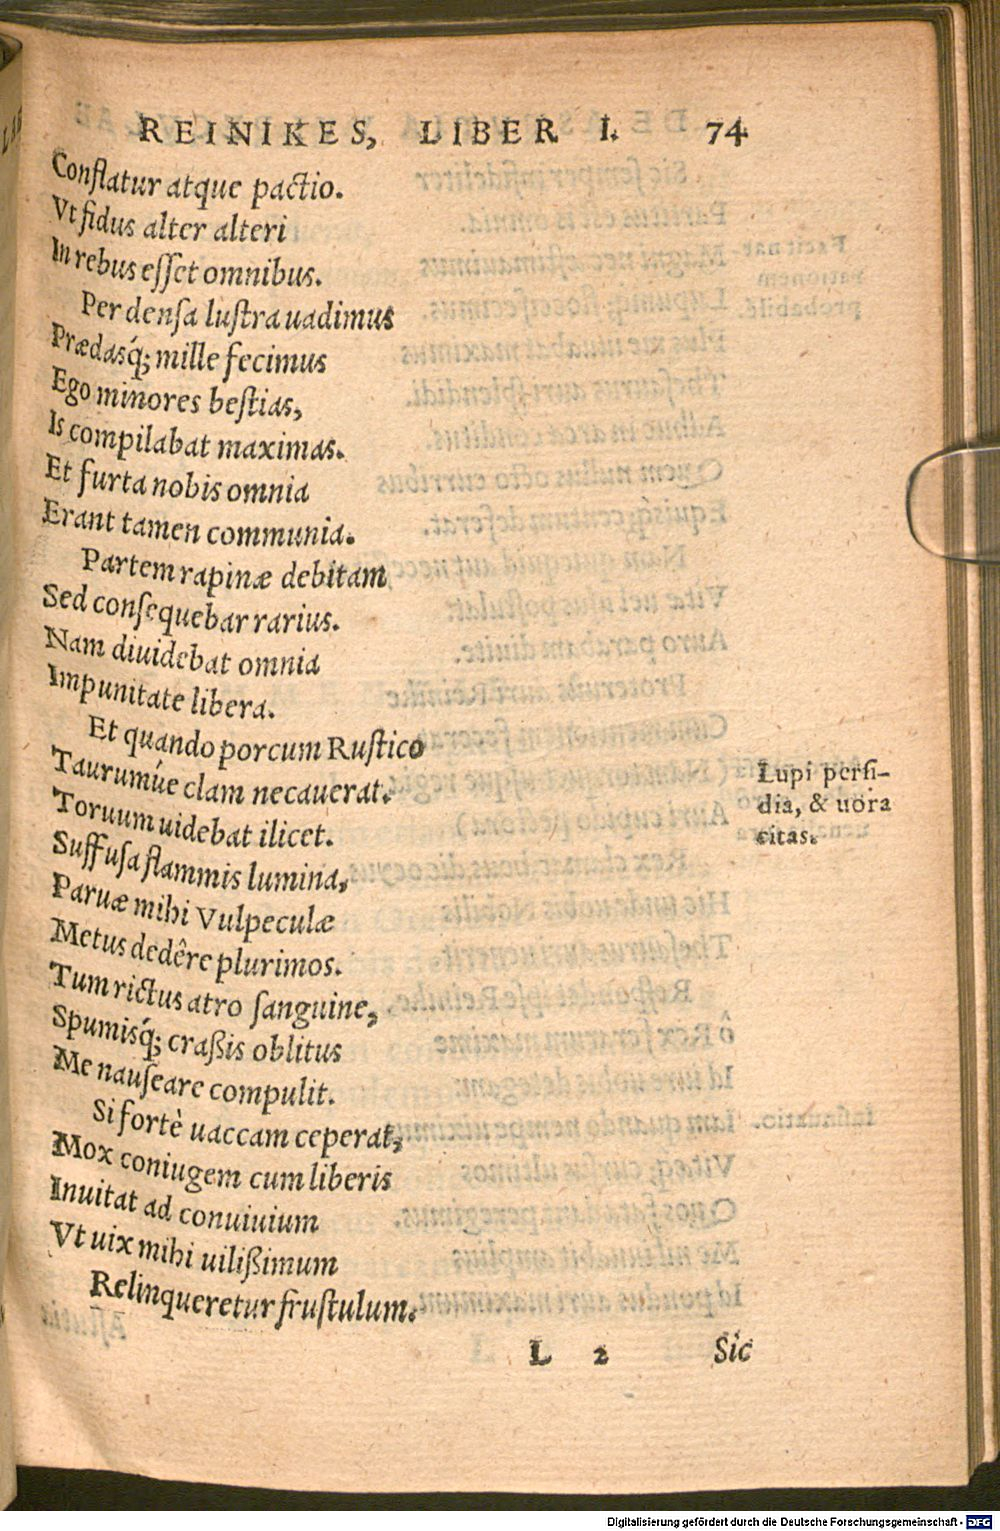 REINIKES, LIBER I. 74
Conflatur atque pactio.
Vt fidus alter alteri
In rebus eſſet omnibus.
Per denſa luſtra uadimus
Prædasq́; mille fecimus
Ego minores beſtias,
Is compilabat maximas.
Et furta nobis omnia
Erant tamen communia.
Partem rapinæ debitam
Sed conſequebar rarius.
Nam diuidebat omnia
Impunitate libera.
Et quando porcum Ruſtico
Taurumúe clam necauerat.
Toruum uidebat ilicet.
Suffuſa flammis lumina,
Paruæ mihi Vulpeculæ
Metus dedêre plurimos.
Tum rictus atro ſanguine,
Spumisq́; craßis oblitus
Me nauſeare compulit.
Si fortè uaccam ceperat,
Mox coniugem cum liberis
Inuitat ad conuiuium
Vt uix mihi uilißimum
Relinqueretur fruſtulum.
Lupi perfi-
dia, & uora
citas.
L 2 Sic
Digitalisierung gefördert durch die Deutsche Forschungsgemeinschaft - DFG